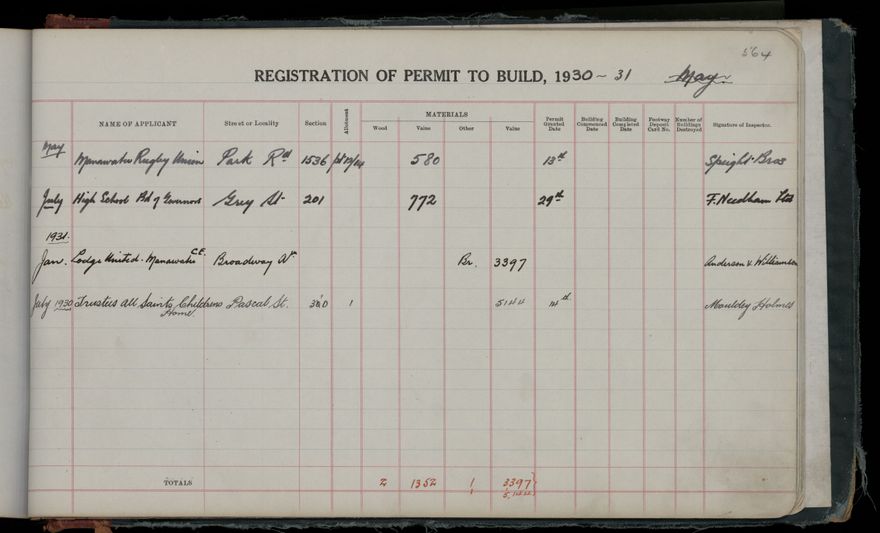 564
REGISTRATION OF PERMIT TO BUILD, 1930-31 May.
NAME OF APPLICANT Street or Locality Section Allotment MATERIALS Permit Granted Date Building Commenced Date Building Completed Date Footway Deposit Card No. Number of Buildings Destroyed Signature of Inspector.
Wood Value Other Value
May Manawatu Rugby Union Park Rd 1536 580 13th Speight Bros
July High School Bd of Governors Grey St 201 772 29th F. Needham Ltd
1931.
Jan. Lodge United Manawatu C.E. Broadway Av Br. 3397 Anderson & Williamson
July 1930 Trustees All Saints Childrens Home Pascal St. 1 5144 Mouldey Holmes
TOTALS 2 1352 1 3397
1 5,144